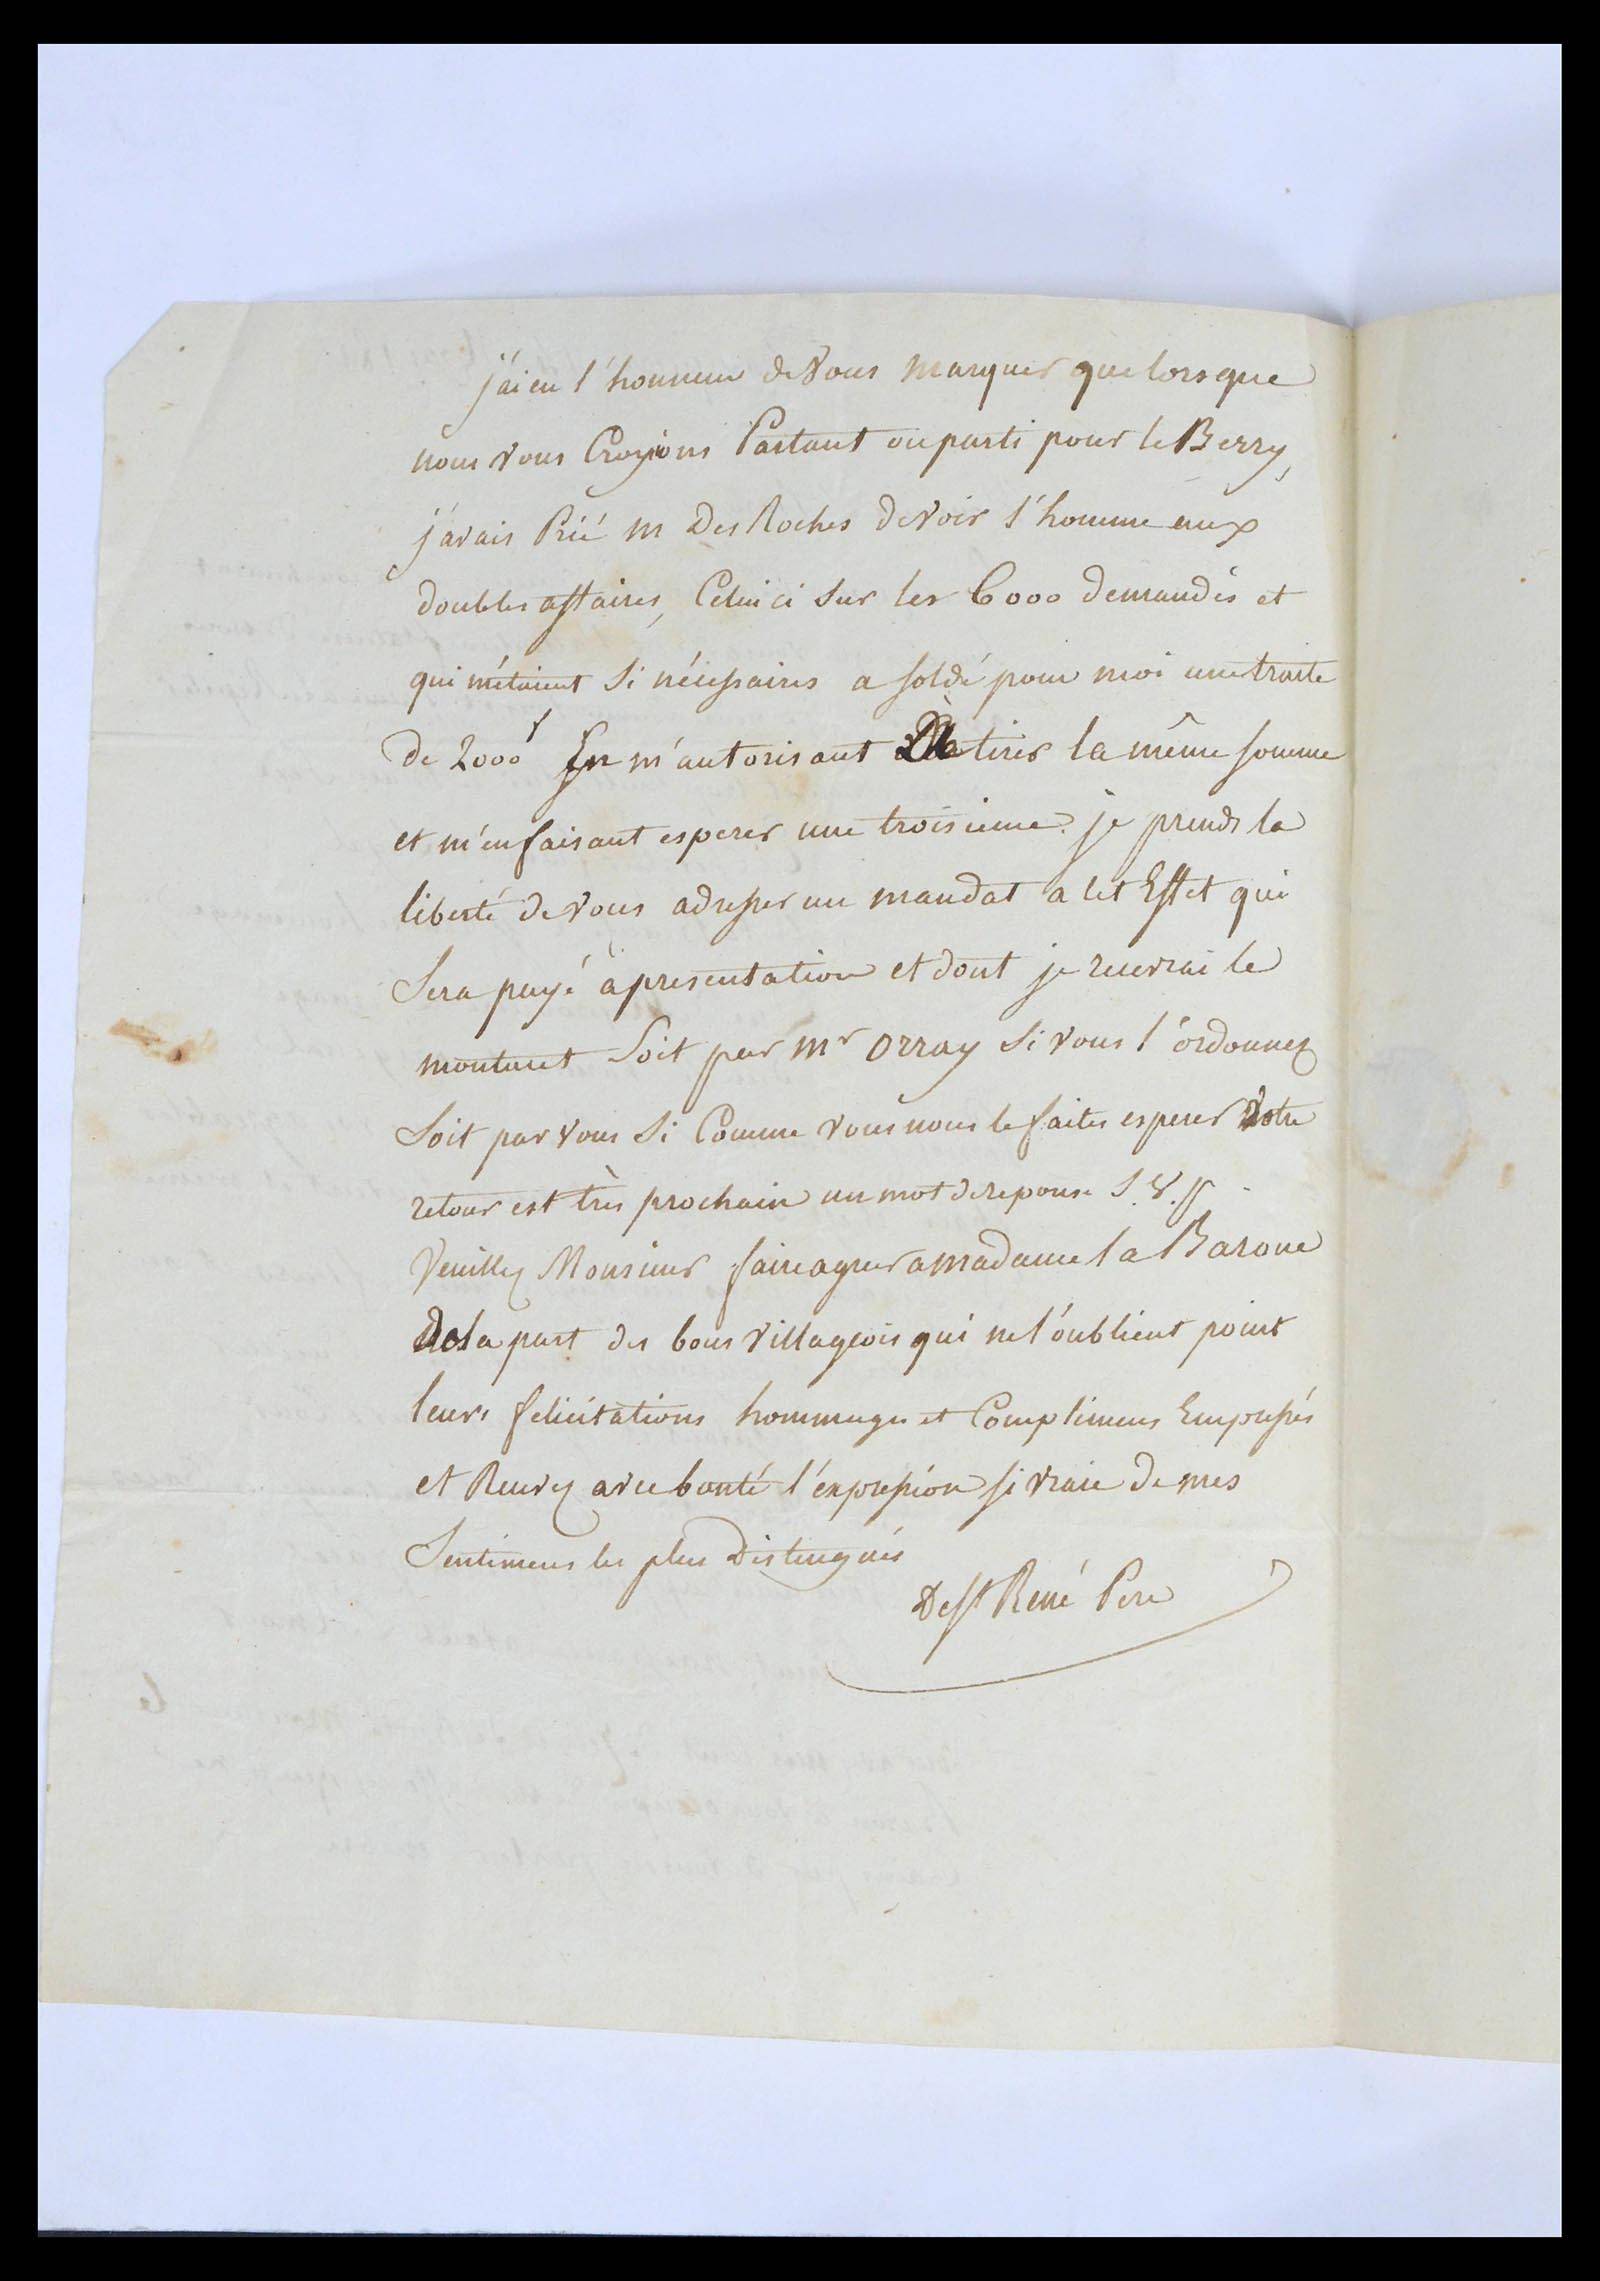 j'ai eu l'honneur de Vous marquer que lorsque
nous vous Croyions Partant ou parti pour le Berry,
j'avais Prié m Des Roches de voir l'homme aux
doubles affaires, Celui ci sur les 6000 demandés et
qui m'étaient si nécessaires a soldé pour moi une traite
de 2000f En m'autorisant à tirer la même somme
et m'en faisant esperer une troisieme. je prends la
liberté de vous adresser un mandat a cet Effet qui
Sera payé à presentation et dont je recevrai le
montant Soit par Mr Orray si vous l'ordonnez
Soit par vous si Comme vous nous le faites esperer Votre
retour est très prochain un mot de reponse S.V.P.
Veuillez Monsieur faire agreer a madame la Barone
De la part des bons Villageois qui ne l'oublient point
leurs felicitations hommages et Complimens Empressés
et Recevez avec bonté l'expression si vraie de mes
Sentimens les plus Distingués
De St René Pere